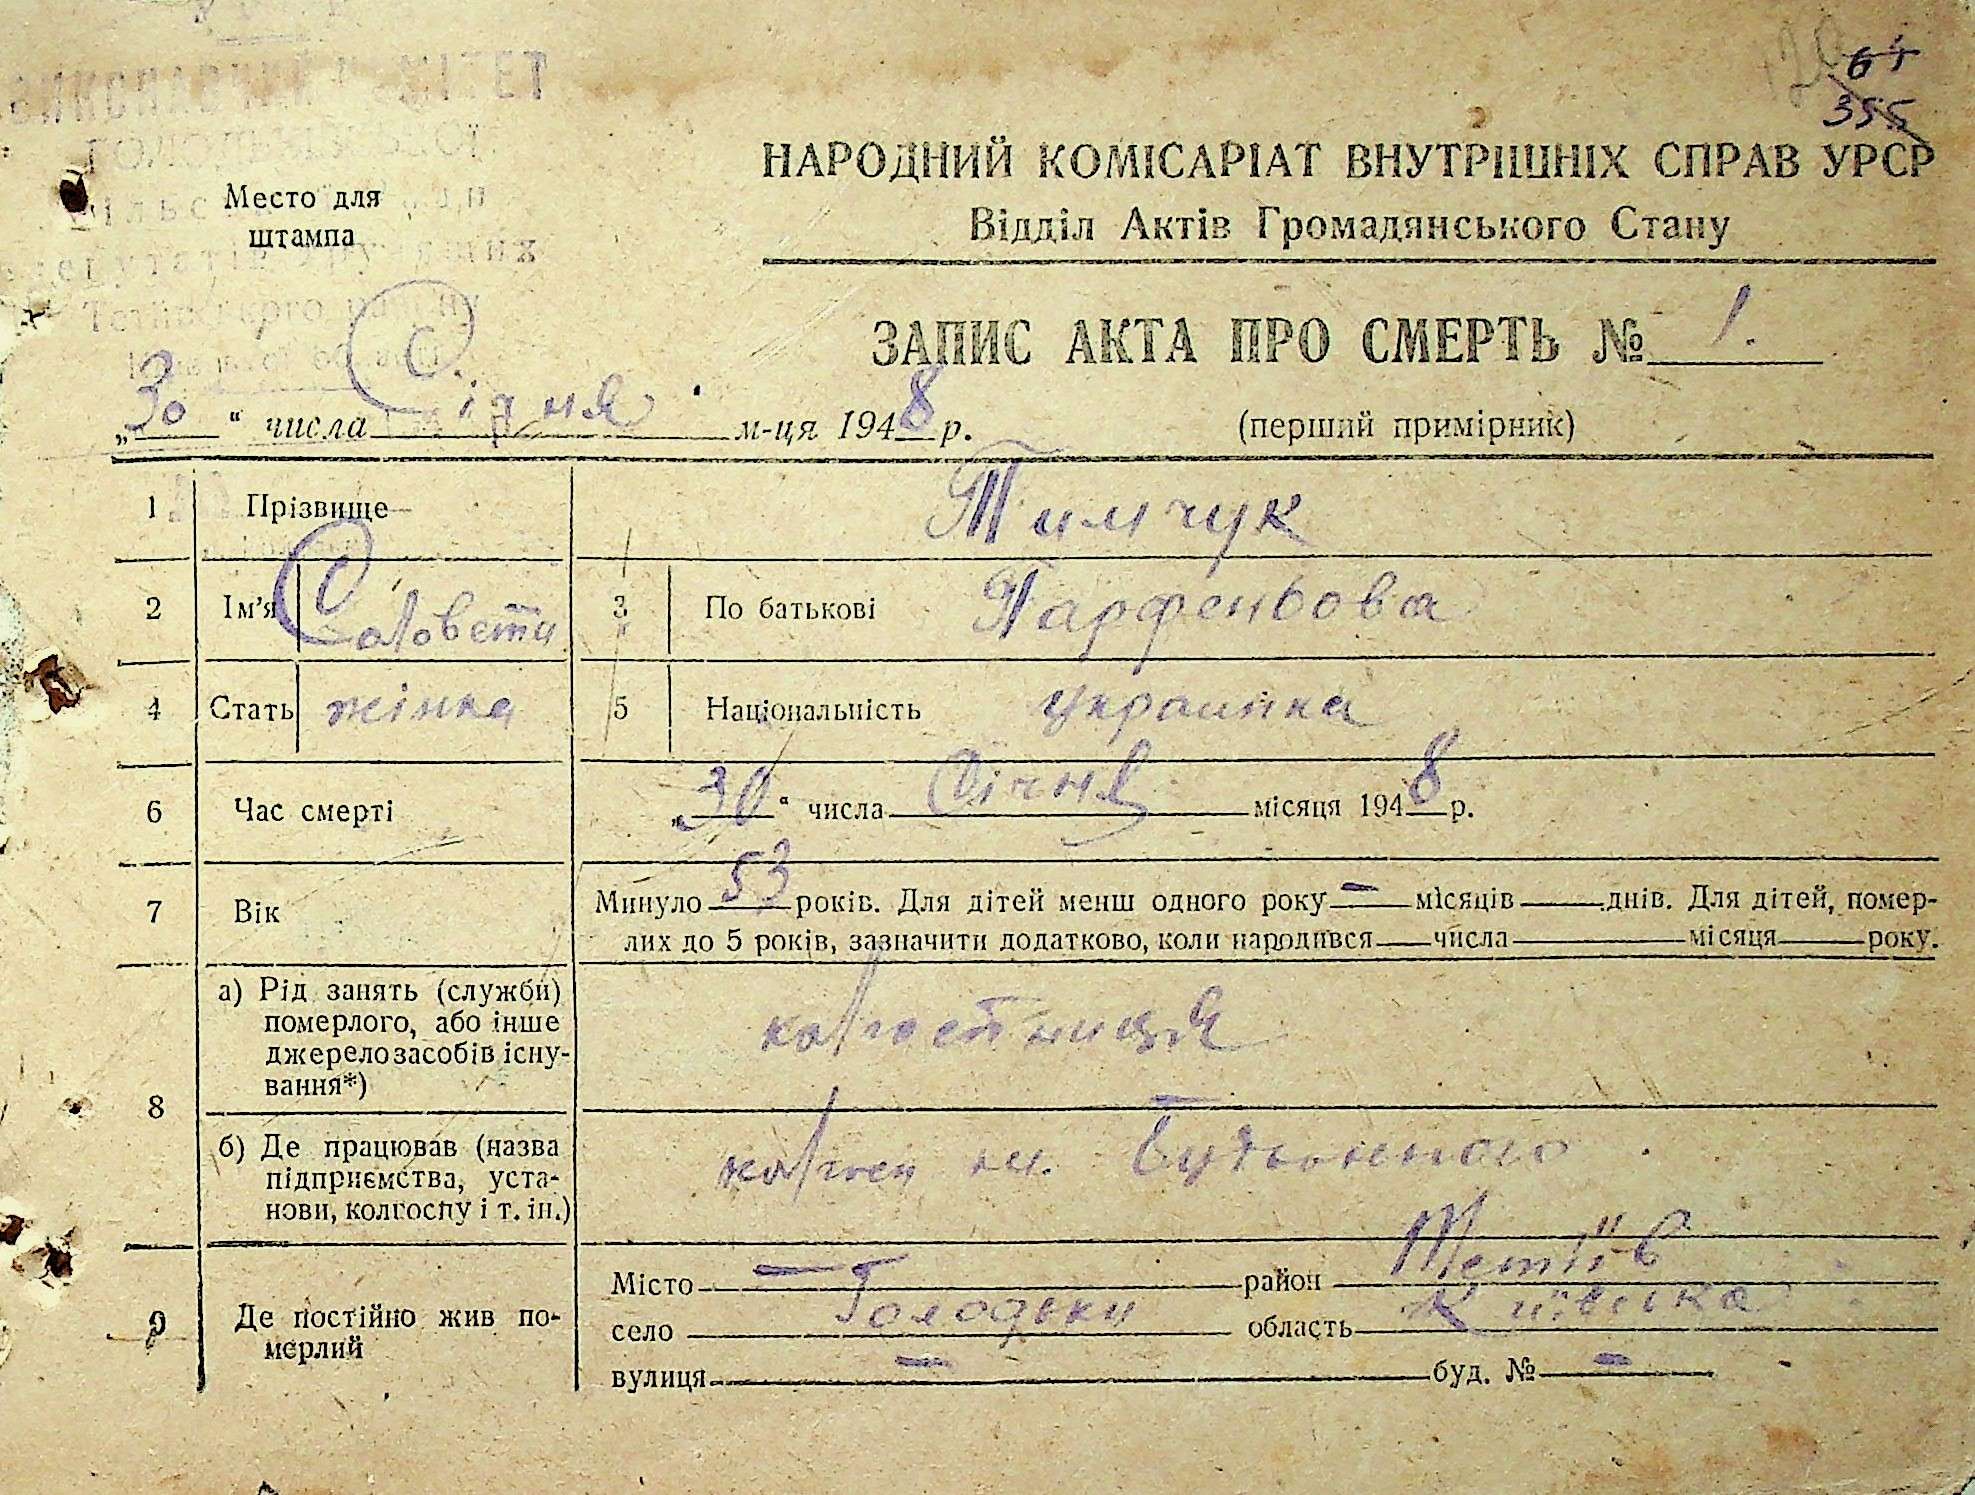 64
355
НАРОДНИЙ КОМІСАРІАТ ВНУТРІШНІХ СПРАВ УРСР
Відділ Актів Громадянського Стану
Место для
штампа
ЗАПИС АКТА ПРО СМЕРТЬ № 1.
„30“ числа Січня м-ця 1948 р.
(перший примірник)
1 Прізвище Тимчук
2 Ім'я Соловети 3 По батькові Парфеньова
4 Стать жінка 5 Національність украинка
6 Час смерті „30“ числа Січня місяця 1948 р.
7 Вік Минуло 53 років. Для дітей менш одного року — місяців днів. Для дітей, помер-
лих до 5 років, зазначити додатково, коли народився числа місяця року.
8 а) Рід занять (служби)
померлого, або інше
джерело засобів існу-
вання*) колгоспниця
б) Де працював (назва
підприємства, уста-
нови, колгоспу і т. ін.) колгосп ім. Будьонного
9 Де постійно жив по-
мерлий
Місто — район Тетіїв
село Голодьки область Київська
вулиця — буд. № —